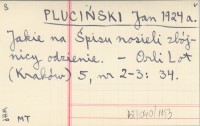 PLUCIŃSKI Jan 1924 a.
Jakie na Spiszu nosili zbój-
nicy odzienie. – Orli Lot
(Kraków) 5, nr 2-3: 34.
MT